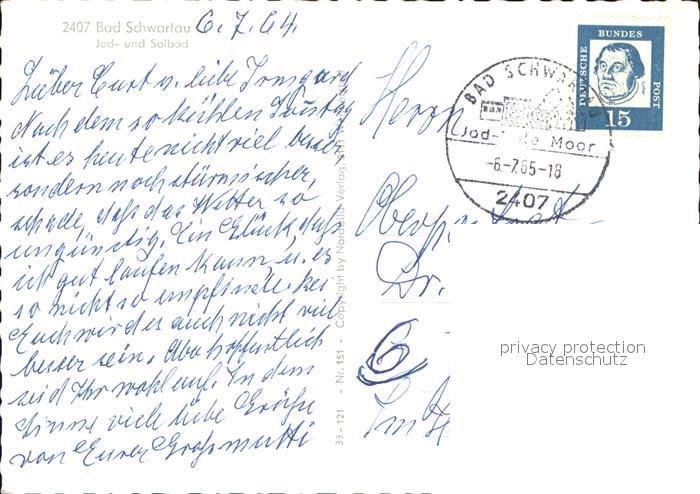 2407 Bad Schwartau
Jod- und Solbad
6.7.64.
Lieber Curt u. liebe Irmgard
Nach dem so kühlen Samstag
ist es heute nicht viel besser
sondern noch stürmischer,
schade, daß das Wetter so
ungünstig. Ein Glück, daß
ich gut laufen kann u. es
so nicht so empfinde. Bei
Euch wird es auch nicht viel
besser sein. Also hoffentlich
seid Ihr wohlauf. In dem
Sinne viele liebe Grüße
von Eurer Großmutti
33-121 - Nr. 151 - Copyright by
Verlag,
DEUTSCHE BUNDES POST
15
BAD SCHWARTAU
Jod- Moor
-6.-7.65-18
2407
Herrn
Dr.
6
privacy protection
Datenschutz